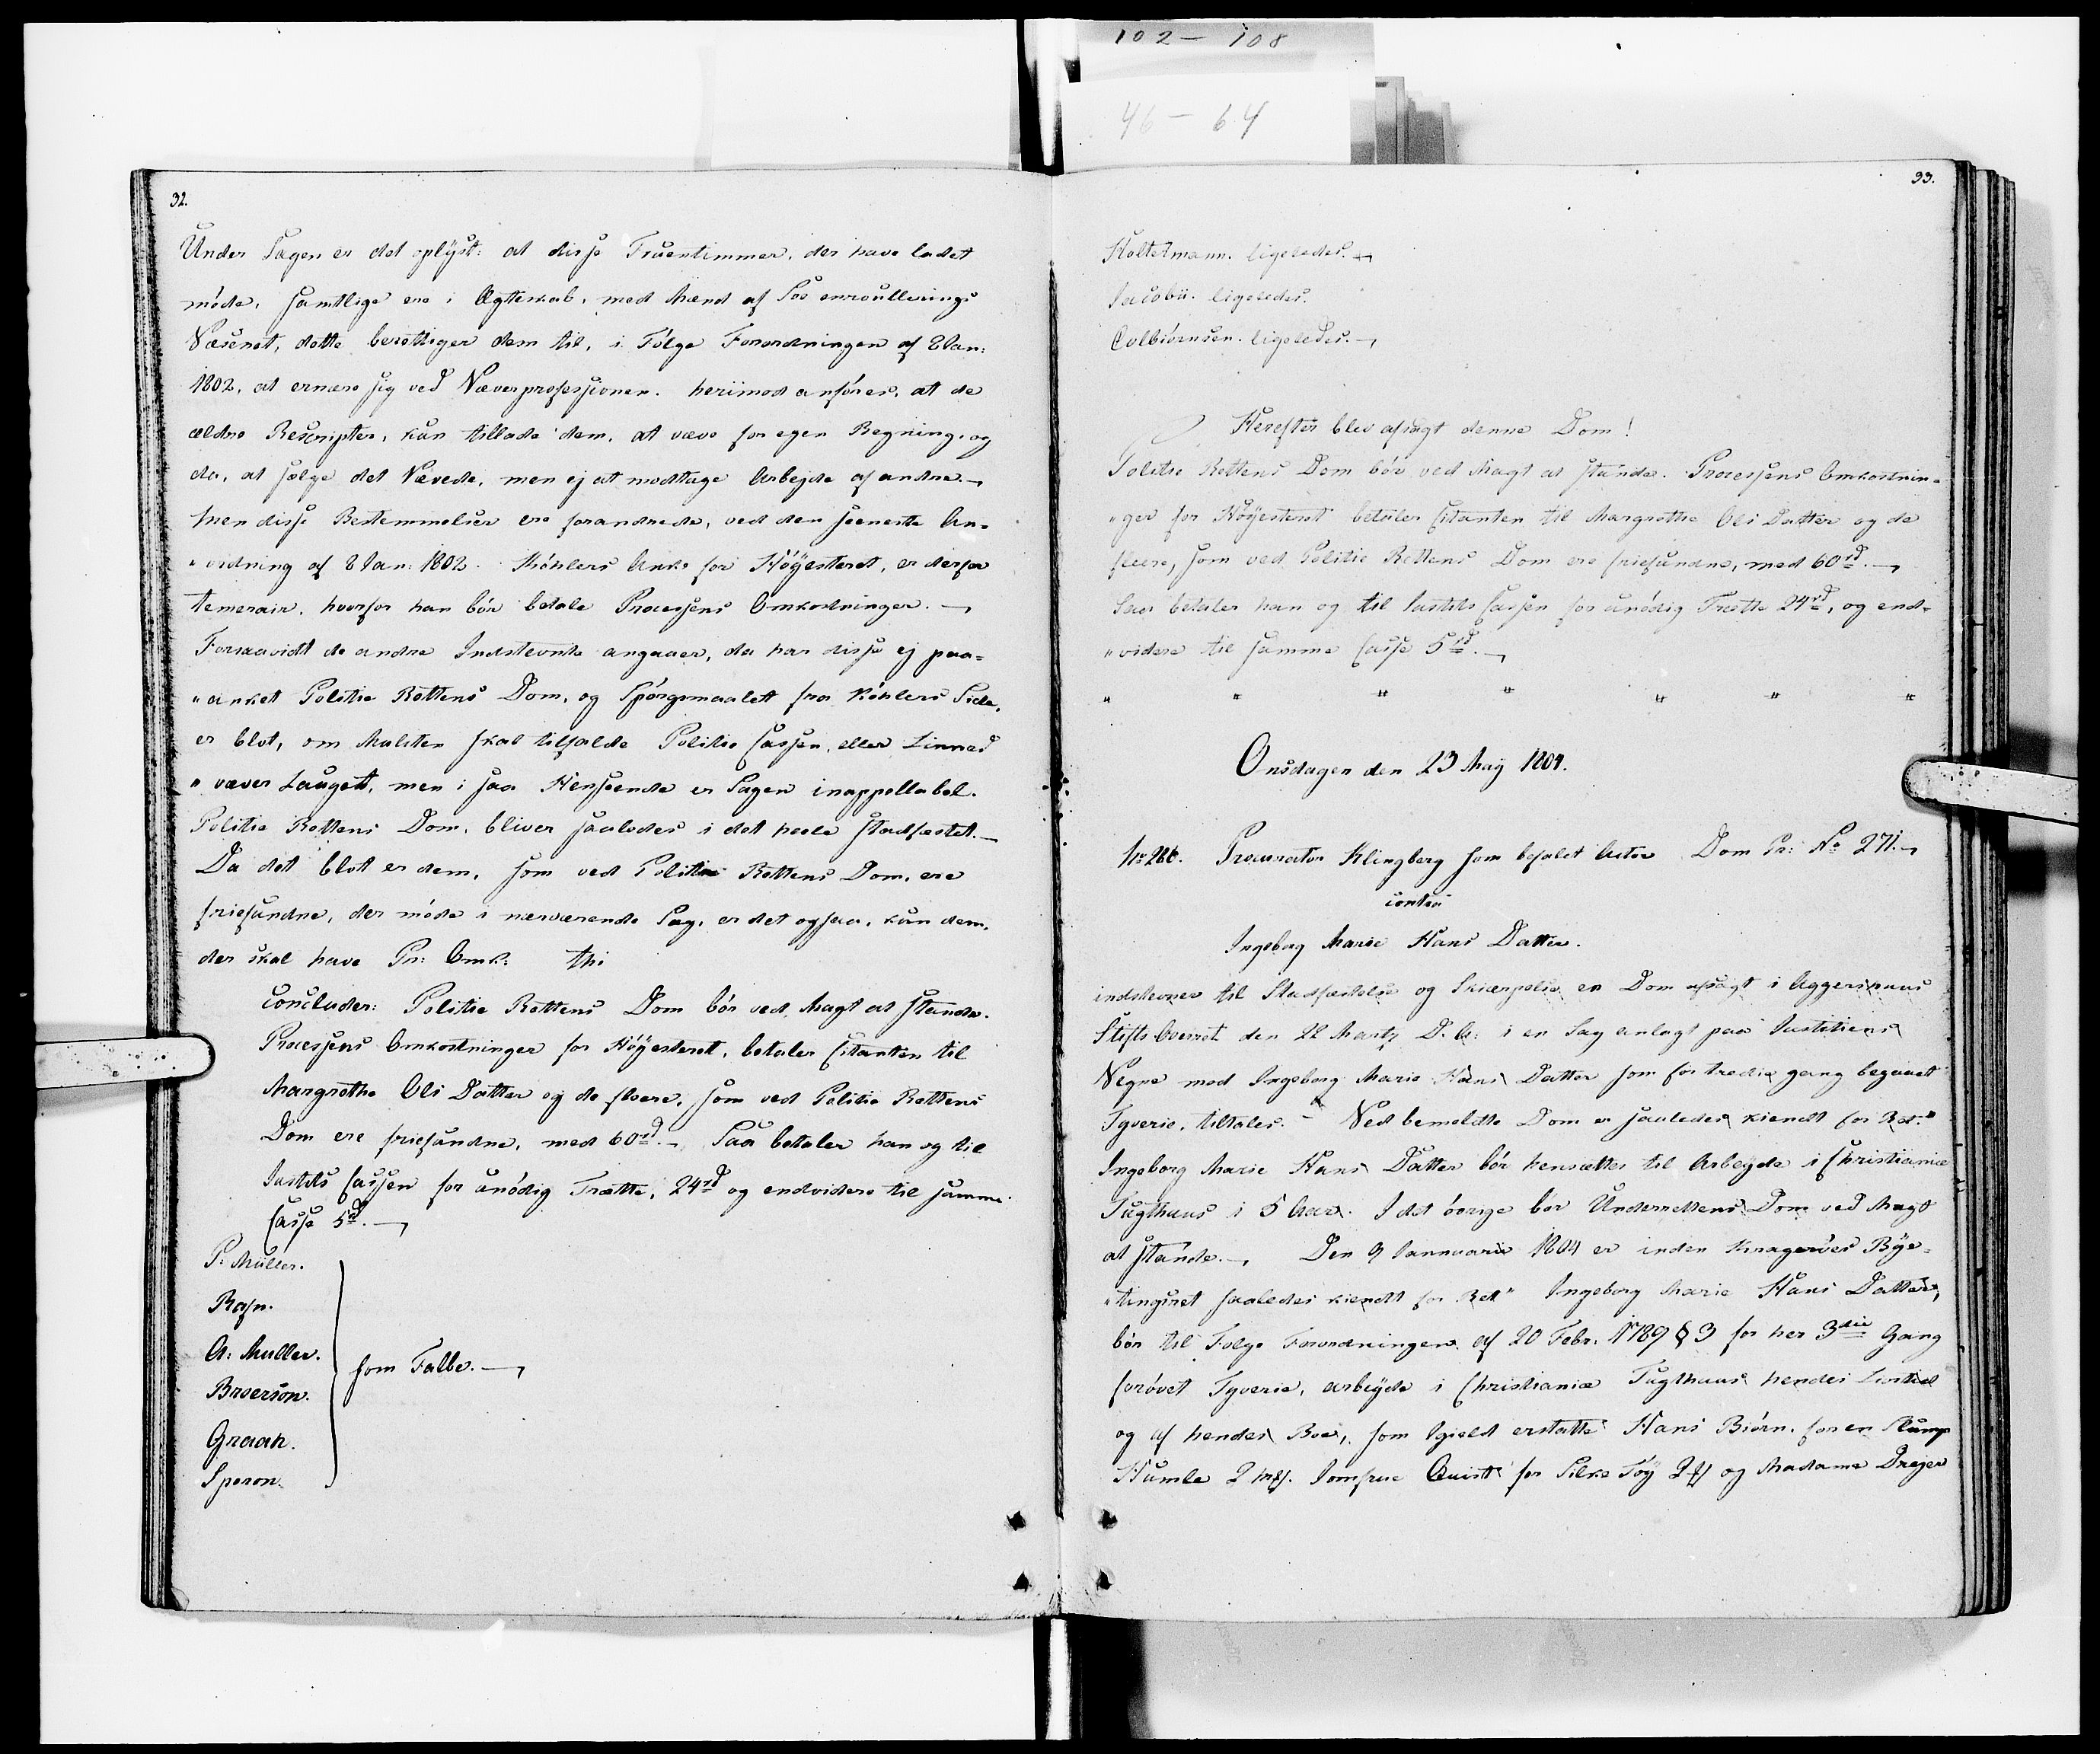 102 - 108
46 - 64
32.
Under Sagen er det oplÿst: at disse Fruentimmer, der have ladet
møde, samtlige ere i Ægteskab, med Mænd af Søe enroullerings
Væsenet, dette berettiger dem til, i Følge Forordningen af 8 Jan:
1802, at ernære sig ved Væverprofessionen. heriimod anføres, at de
ældre Rescripter, kun tillade dem, at væve for egen Regning, og
da, at sælge det Vævede, men ej at modtage Arbejde af andre. —
Men disse Bestemmelser ere forandrede, ved den seeneste An-
"ordning af 8 Jan: 1802. Köhlers Anke for Höÿesteret, er derfor
temerair, hvorfor han bör betale Processens Omkostninger. —
Forsaavidt de andre Indstevnte angaaer, da har disse ej paa-
"anket Politie Rettens Dom, og Spörgsmaalet fra Köhlers Side,
er blot, om Mulcten skal tilfalde Politie Cassen, eller Linned
"væver Lauget, men i saa Henseende er Sagen inappellabel.
Politie Rettens Dom, bliver saaledes i det heele stadfæstet. —
Da det blot er dem, som ved Politie Rettens Dom, ere
friefundne, der møde i nærværende Sag, er det ogsaa, kun dem,
der skal have Pr: Omk: thi
Concluder: Politie Rettens Dom bör ved Magt at stande.
Processens Omkostninger for Höÿesteret, betaler Citanten til
Margrethe Ols Datter og de fleere, som ved Politie Rettens
Dom ere friefundne, med 60 rd. — Saa betaler han og til
Justits Cassen for unödig Trætte, 24 rd og endvidere til samme
Casse 5 rd. —
P: Müller.
Rafn.
A: Muller.
Broerson.
Graah.
Sporon.
som Falbe. —
33.
Koltetmann. ligeledes. —
Jacobii. ligeledes.
Colbiörnsen. ligeledes. —
Herefter blev afsagt denne Dom!
Politie Rettens Dom bör ved Magt at stande. Processens Omkostnin-
"ger for Höÿesteret betaler Citanten til Margrethe Ols Datter og de
fleere, som ved Politie Rettens Dom ere friefundne, med 60 rd. —
Saa betaler han og til Justits Cassen for unödig Trætte 24 rd, og end-
"videre til samme Casse 5 rd. —
" " " " " " "
Onsdagen den 23 Maÿ 1804.
No 286. Procurator Klingberg som befalet Actor Dom Pr: No 271. —
contra
Ingeborg Marie Hans Datter.
indstevner til Stadfæstelse og Skiærpelse en Dom afsagt i Aggershuus
Stifts Overret den 22 Marty D. A: i en Sag anlagt paa Justitiens
Vegne mod Ingeborg Marie Hans Datter som for tredie gang begaaet
Tyverie, tiltales. — Ved bemeldte Dom er saaledes kiendt for Ret:"
Ingeborg Marie Hans Datter bör hensættes til Arbeÿde i Christianiæ
Tugthuus i 5 Aar. I det övrige bör Underrettens Dom ved Magt
at stande. — Den 9 Januarii 1804 er inden Krageröes Bÿe-
"tingsret saaledes kiendt for Ret" Ingeborg Marie Hans Datter,
bör til Følge Forordningen af 20 Febr. 1789 § 3 for her 3die Gang
forövet Tyverie, arbeÿde i Christianiæ Tugthuus hendes Livstid
og af hendes Boe, som Igield erstatte Hans Biörn, for en Slump
Humle 2 mk. Jomfrue Quist for Silke Töÿ 2 og Madame Drejer